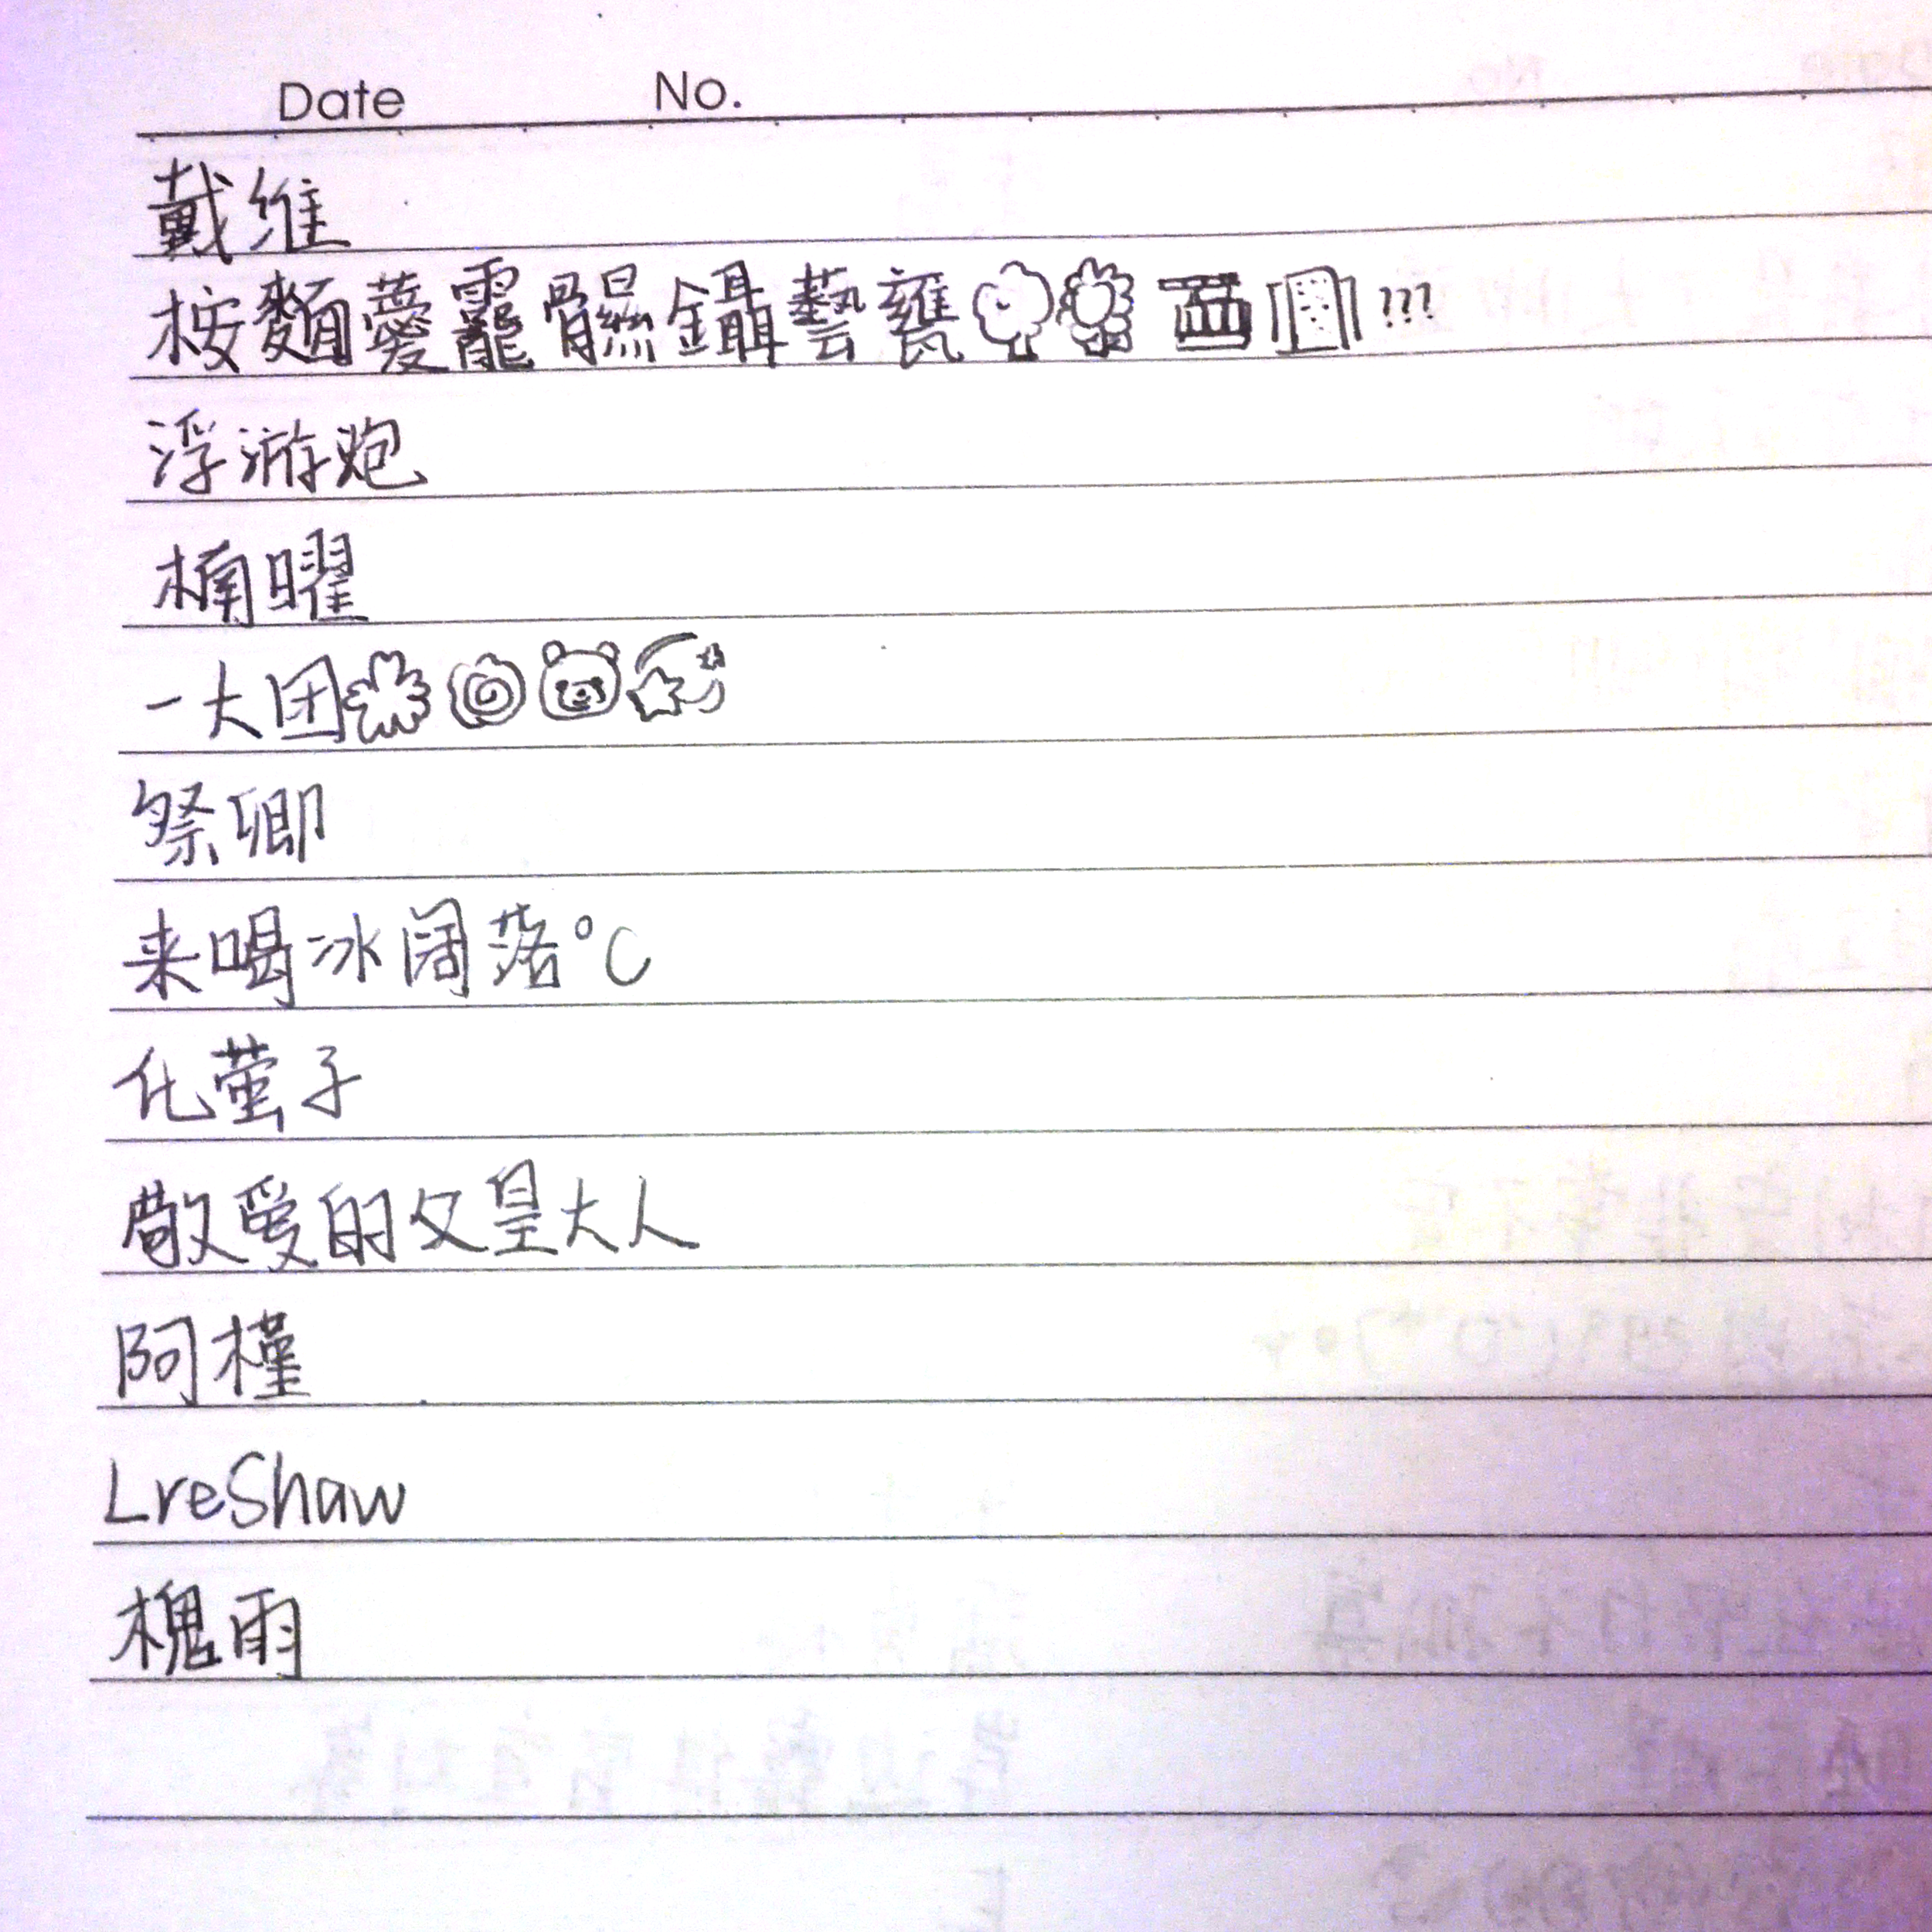 Date No.
戴维
桉麵薆龗髞鑷藝甕???
浮游炮
楠曜
一大团
祭卿
来喝冰阔落℃
化萤子
敬爱的父皇大人
阿槿
LreShaw
槐雨